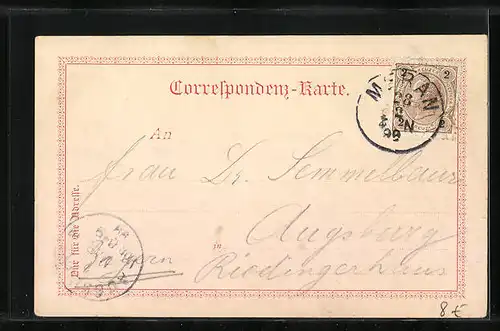 Correspondenz-Karte.
2 2
MERAN
99
An
Frau Dr. Semmelbaur
in Augsburg
Bayern
Riedingerhaus
Nur für die Adresse.
8 €